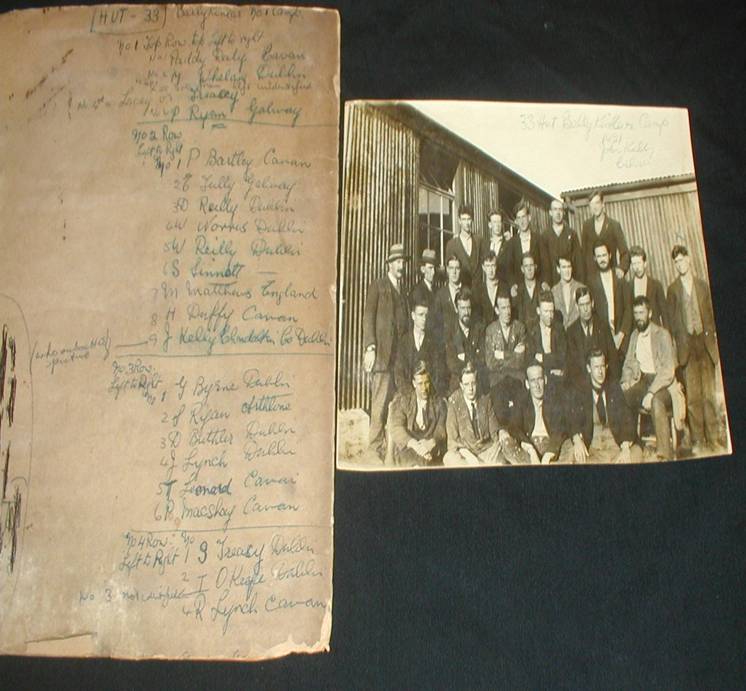 HUT - 33 Ballykinlar No 1 Camp
No 1 Top Row Left to right
Paddy Daly Cavan
Whelan Dublin
Treacy
P Ryan Galway
No 2 Row
Left to Right
No 1 P Bartley Cavan
2 Tully Galway
3D Reilly Dublin
4W Norris Dublin
5W Reilly Dublin
6S Sinnott —
7M Matthews England
8 H Duffy Cavan
9 J Kelly Clondalkin Co Dublin
No 3 Row
Left to Right
No 1 G Byrne Dublin
2 J Ryan Athlone
3D Buttler Dublin
4J Lynch Dublin
5T Leonard Cavan
6P Cavan
No 4 Row No
Left to Right 1 J Treacy Dublin
2 T O Keefe Dublin
No 3 not identified
4 R Lynch Cavan
33 Hut Camp
1921
John Kelly